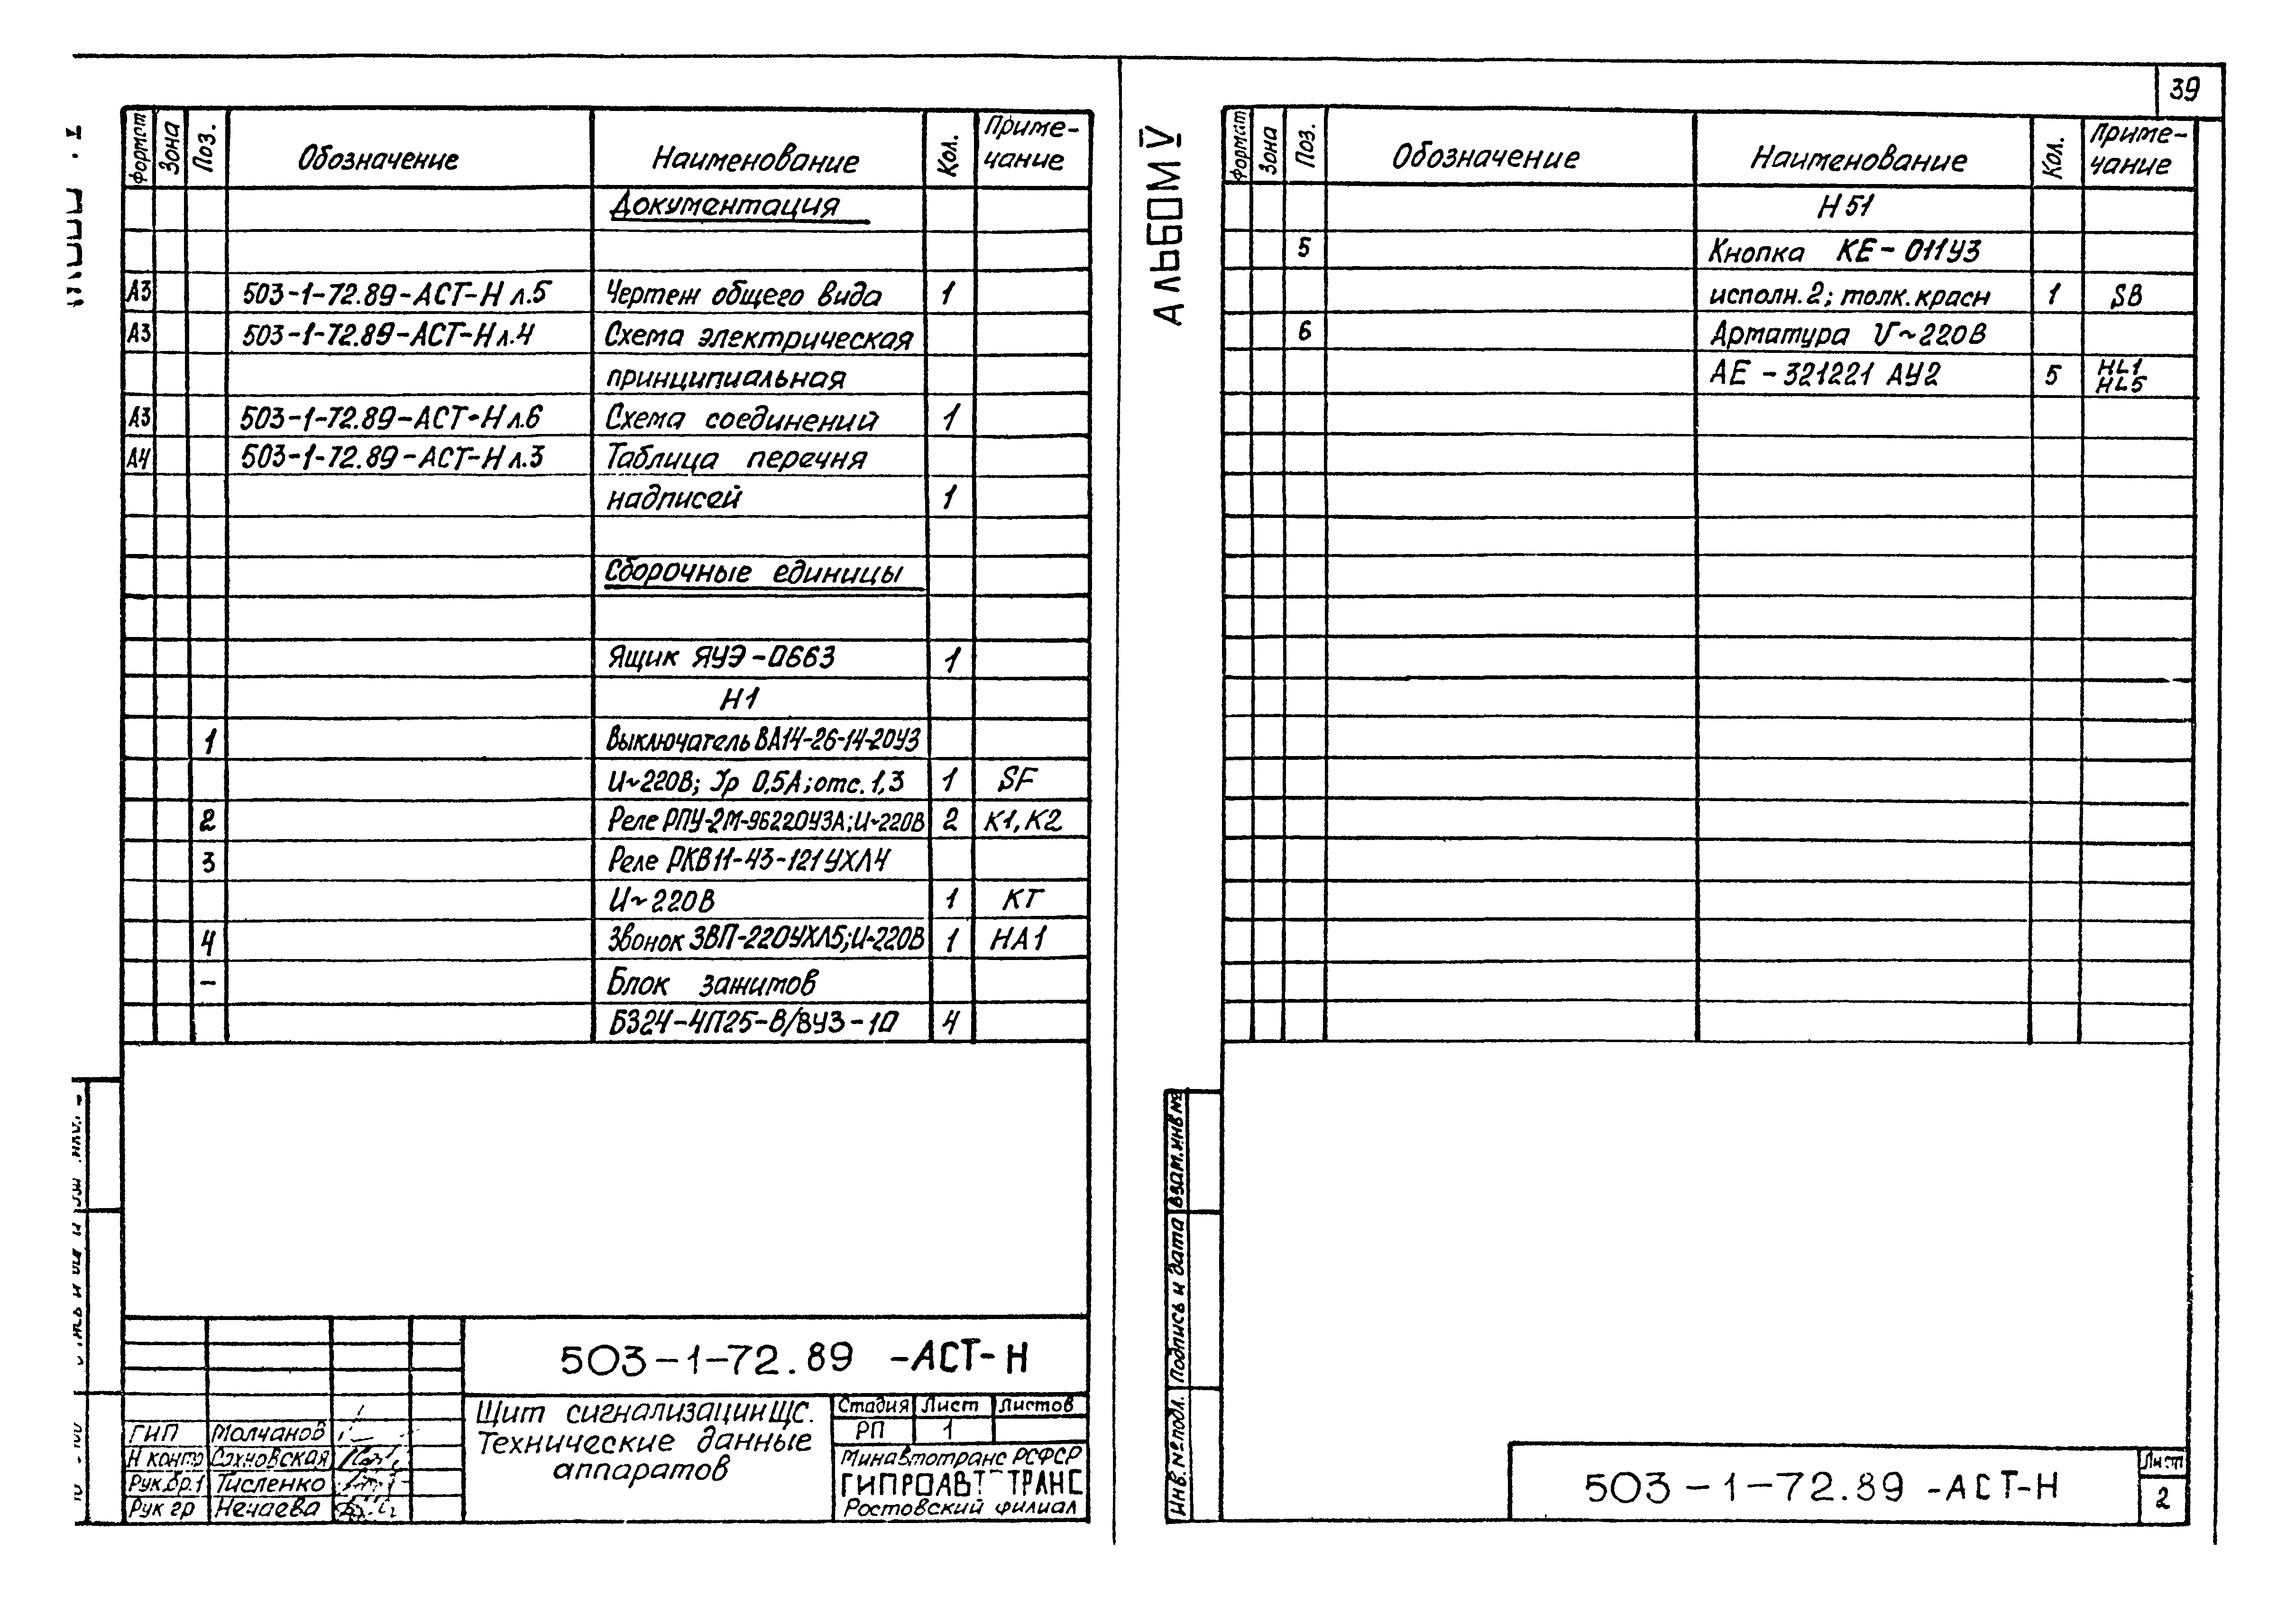 39
Формат Зона Поз. Обозначение Наименование Кол. Приме-
чание
Документация
А3 503-1-72.89-АСТ-Н л.5 Чертеж общего вида 1
А3 503-1-72.89-АСТ-Н л.4 Схема электрическая
принципиальная
А3 503-1-72.89-АСТ-Н л.6 Схема соединений 1
А4 503-1-72.89-АСТ-Н л.3 Таблица перечня
надписей 1
Сборочные единицы
Ящик ЯУЭ-0663 1
Н1
1 Выключатель ВА14-26-14-20У3
U~220В; Jр 0,5А; отс. 1,3 1 SF
2 Реле РПУ-2М-96220У3А; U~220В 2 К1, К2
3 Реле РКВ11-43-121УХЛ4
U~220В 1 КТ
4 Звонок ЗВП-220УХЛ5; U~220В 1 НА1
- Блок зажимов
Б324-4П25-В/ВУ3-10 4
503-1-72.89 -АСТ-Н
Щит сигнализации ЩС.
Технические данные
аппаратов
Стадия Лист Листов
РП 1
Минавтотранс РСФСР
ГИПРОАВТОТРАНС
Ростовский филиал
ГИП Молчанов
Н контр Сахновская
Рук.бр.1 Тисленко
Рук гр Нечаева
АЛЬБОМ V
Формат Зона Поз. Обозначение Наименование Кол. Приме-
чание
Н51
5 Кнопка КЕ-011У3
исполн.2; толк.красн 1 SB
6 Арматура U~220В
АЕ-321221 АУ2 5 HL1
HL5
Взам.инв№
Подпись и дата
Инв.№подл.
503-1-72.89 -АСТ-Н
Лист
2